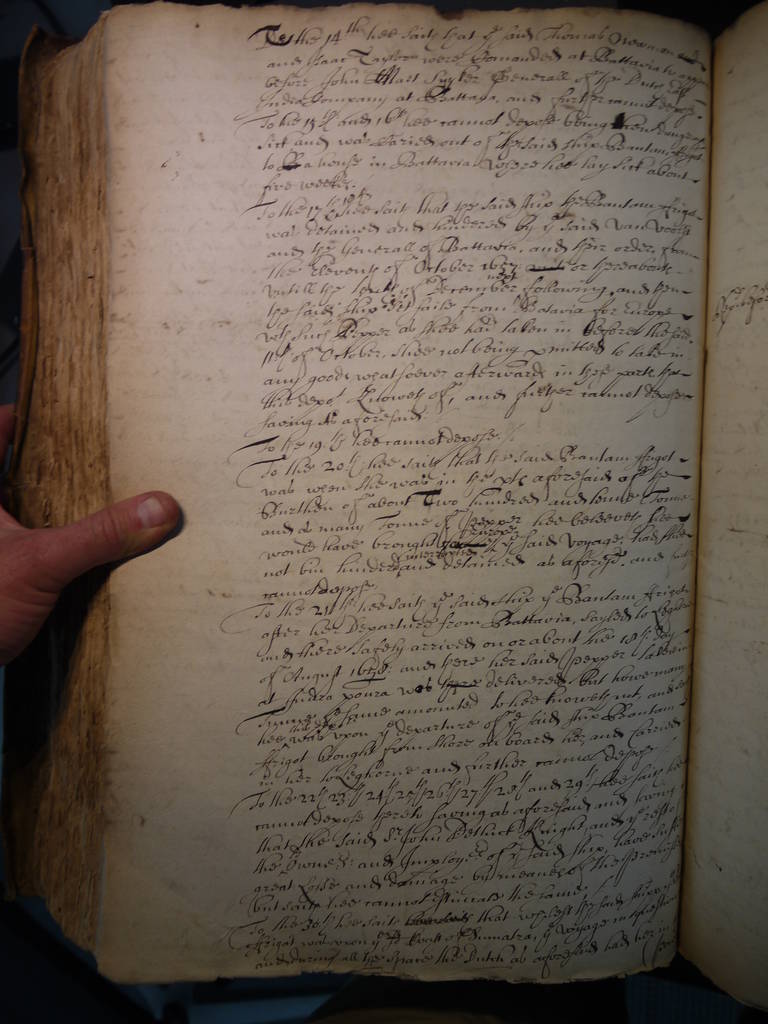 To the 14th hee saith that ye said Thomas
and Isaac Taylor were Comanded at Battavia to
before John Matt Suyker Generall of the Dutch
India Company at Battavia, and further cannot depose.
To the 15th and 16th hee cannot depose being
sick and was Carried out of the said ship Bantam
to a house in Battavia where hee lay sick about
five weekes.
To the 17th 18th hee saith that the said ship the Bantam frigot
was detained and hindered by ye said Van Voorst
and the Generall of Battavia, and their order, from
the Eleventh of October 1657 or thereabouts
untill the of December next following, and then
the said ship set saile from Batavia for Europe
with such Pepper as shee had taken in before the said
11th of October, shee not being pmitted to take in
any goods whatsoever afterwards in those parts that
this depot knoweth of, and further cannot depose
saving as aforesaid.
To the 19th hee cannot depose.
To the 20th hee saith that the said Bantam frigot
was when shee was in the pts aforesaid of the
Burthen of about Two hundred and tenne Tonne
and as many Tonne of Pepper hee beleeves shee
would have brought Europe ye said voyage, had shee
not bin hindered interrupted and detained as aforesd. and
cannot depose.
To the 21th hee saith ye said ship ye Bantam frigot
after her Departure from Battavia, sayled to Leghorne
and there safely arrived on or about the 18th day
of August 1658. and there her said Pepper taken in
at Indra poura was there delivered. But howe many
Tonnes the same amounted to hee knoweth not, and
hee was upon ye departure of ye said ship Bantam
frigot brought from shore on board her, and carried
in her to Leghorne and further cannot depose.
To the 22th 23th 24th 25th 26th 27th 28th and 29th hee saith hee
cannot depose thereto saving as aforesaid and saving
that the said Sr. John Dethick Knight, and ye rest of
the Owners and Imployers of ye said ship, have suffered
great Losse and damage by meanes of the
but saith hee cannot estimate the same.
To the 30th hee saith that whilest the said shipp
frigat was upon ye sd Coast of Sumatra, ye voyage in question
and during all the space the Dutch as aforesaid had her in